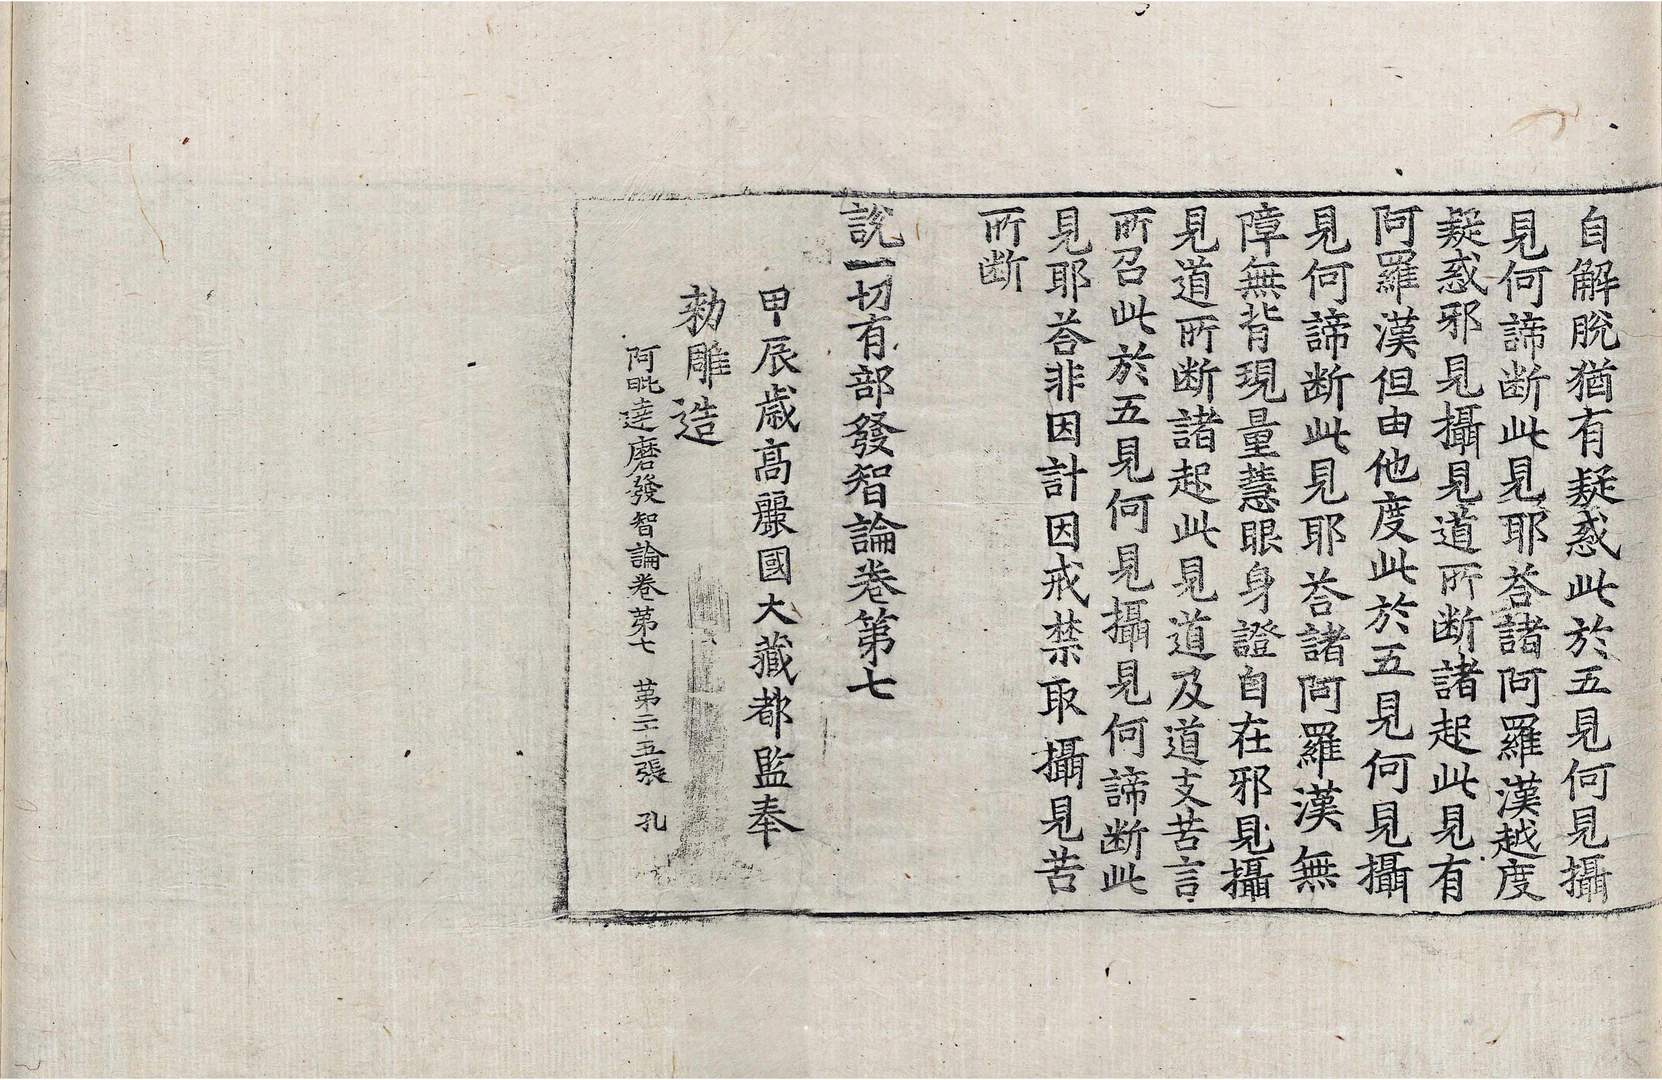 自解脫猶有疑惑此於五見何見攝
見何諦斷此見耶荅諸阿羅漢越度
疑惑邪見攝見道所斷諸起此見有
阿羅漢但由他度此於五見何見攝
見何諦斷此見耶荅諸阿羅漢無
障無背現量慧眼身證自在邪見攝
見道所斷諸起此見道及道支苦言
所召此於五見何見攝見何諦斷此
見耶荅非因計因戒禁取攝見苦
所斷
說一切有部發智論卷第七
甲辰歲高麗國大藏都監奉
勅雕造
阿毗達磨發智論卷第七 第二十五張 孔